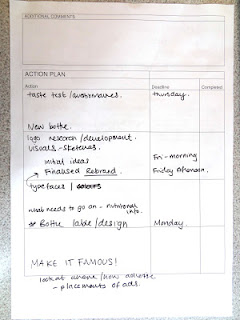 ADDITIONAL COMMENTS
ACTION PLAN
Action Deadline Completed
taste test / questionnaires. Thursday.
New bottle.
logo research / development.
visuals - sketches.
initial ideas Fri - morning
Finalised Rebrand Friday afternoon.
typefaces | colours
what needs to go on - nutritional
info.
* Bottle lable / design Monday.
MAKE IT FAMOUS!
look at where / how advertise
- placements of ads.